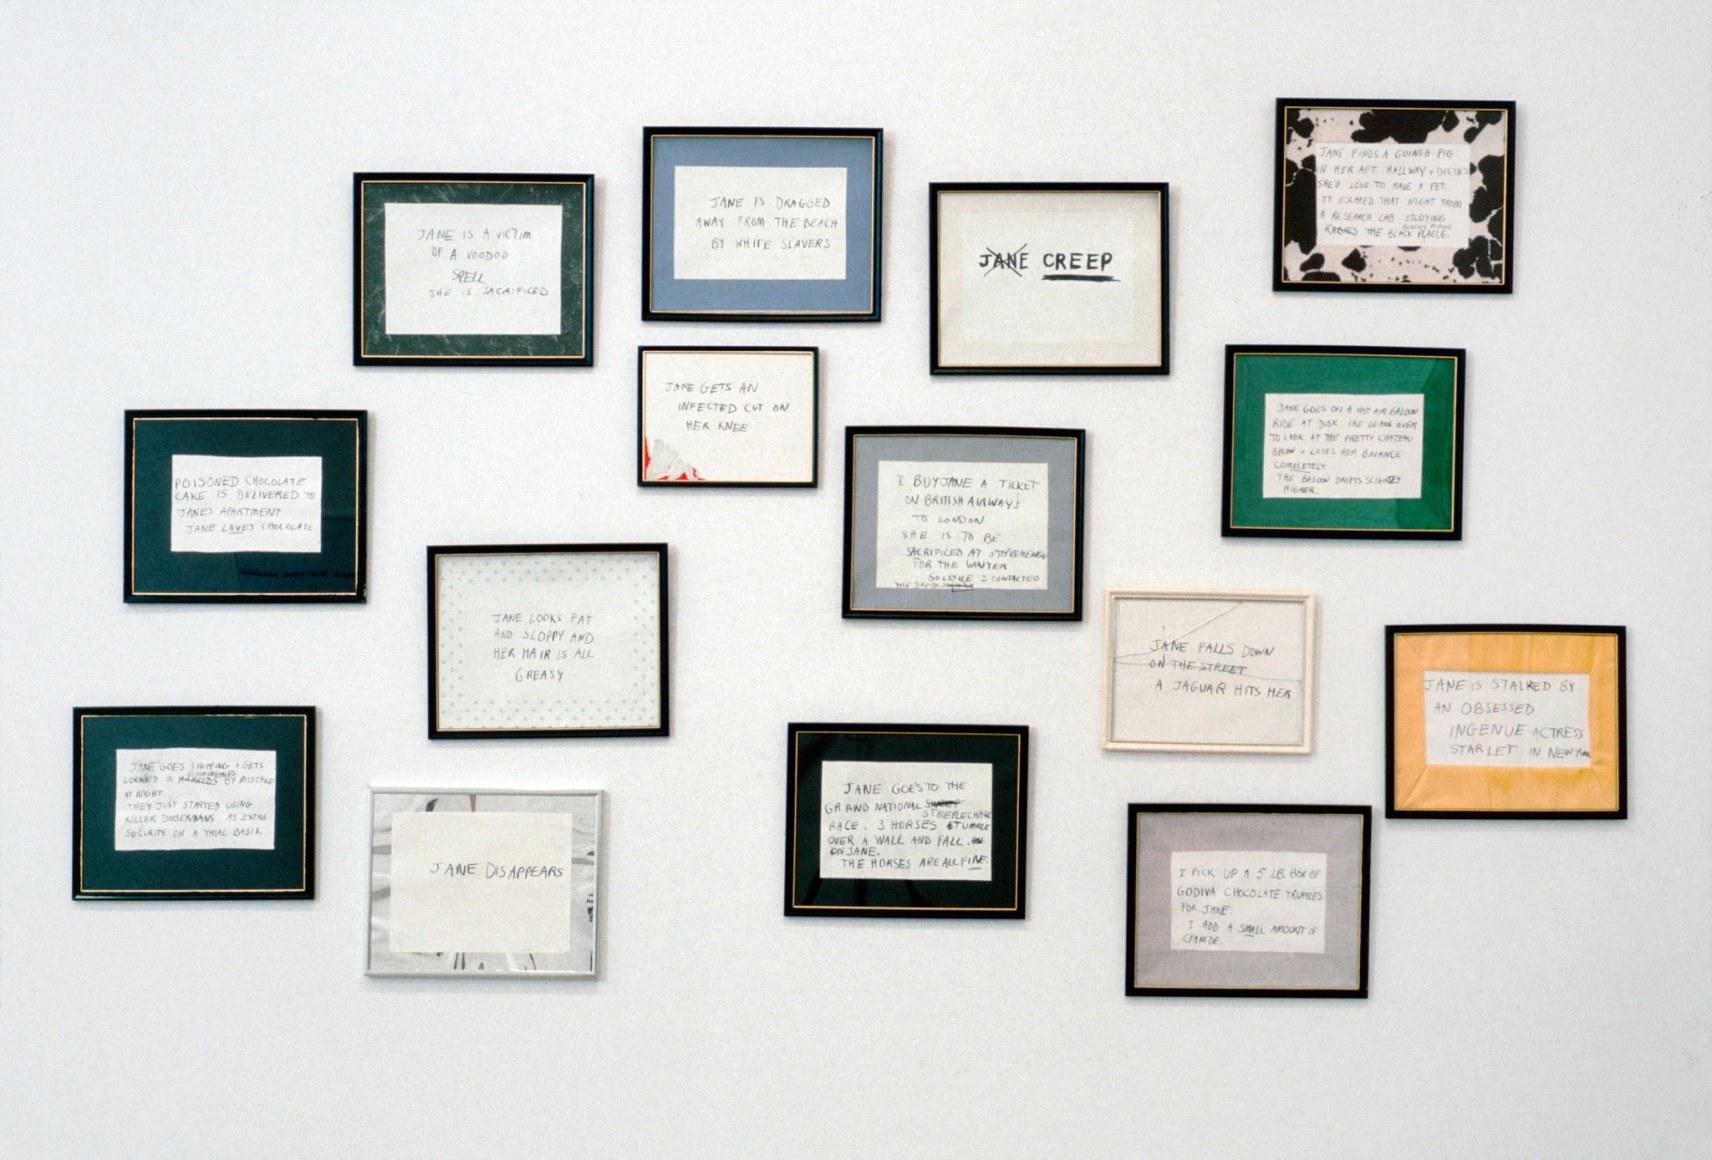 JANE IS A VICTIM
OF A VOODOO
SPELL
SHE IS SACRIFICED
JANE IS DRAGGED
AWAY FROM THE BEACH
BY WHITE SLAVERS
JANE CREEP
JANE FINDS A GUINEA PIG
IN HER APT. HALLWAY + DECIDES
SHE'D LOVE TO HAVE A PET.
IT ESCAPED THAT NIGHT FROM
A RESEARCH LAB STUDYING
RABIES THE BLACK PLAGUE.
JANE GETS AN
INFECTED CUT ON
HER KNEE
JANE GOES ON A HOT AIR BALOON
RIDE AT DUSK SHE LEANS OVER
TO LOOK AT THE PRETTY CHATEAU
BELOW + LOSES HER BALANCE
COMPLETELY
THE BALOON DRIFTS SLIGHTLY
HIGHER.
POISONED CHOCOLATE
CAKE IS DELIVERED TO
JANES APARTMENT
JANE LOVES CHOCOLATE
I BUY JANE A TICKET
ON BRITISH AIRWAYS
TO LONDON
SHE IS TO BE
SACRIFICED AT STONEHENGE
FOR THE WINTER
SOLSTICE I CONTACTED
THE DRUIDS
JANE LOOKS FAT
AND SLOPPY AND
HER HAIR IS ALL
GREASY
JANE FALLS DOWN
ON THE STREET
A JAGUAR HITS HER
JANE IS STALKED BY
AN OBSESSED
INGENUE ACTRESS
STARLET IN NEW YORK
JANE GOES SHOPPING + GETS
BLOOMINGDALES
LOCKED IN HARRODS BY MISTAKE
AT NIGHT.
THEY JUST STARTED USING
KILLER DOBERMANS AS EXTRA
SECURITY ON A TRIAL BASIS.
JANE DISAPPEARS
JANE GOES TO THE
GRAND NATIONAL
STEEPLECHASE
RACE. 3 HORSES STUMBLE
OVER A WALL AND FALL
ON JANE.
THE HORSES ARE ALL FINE.
I PICK UP A 5 LB. BOX OF
GODIVA CHOCOLATE TRUFFLES
FOR JANE.
I ADD A SMALL AMOUNT OF
CYANIDE.